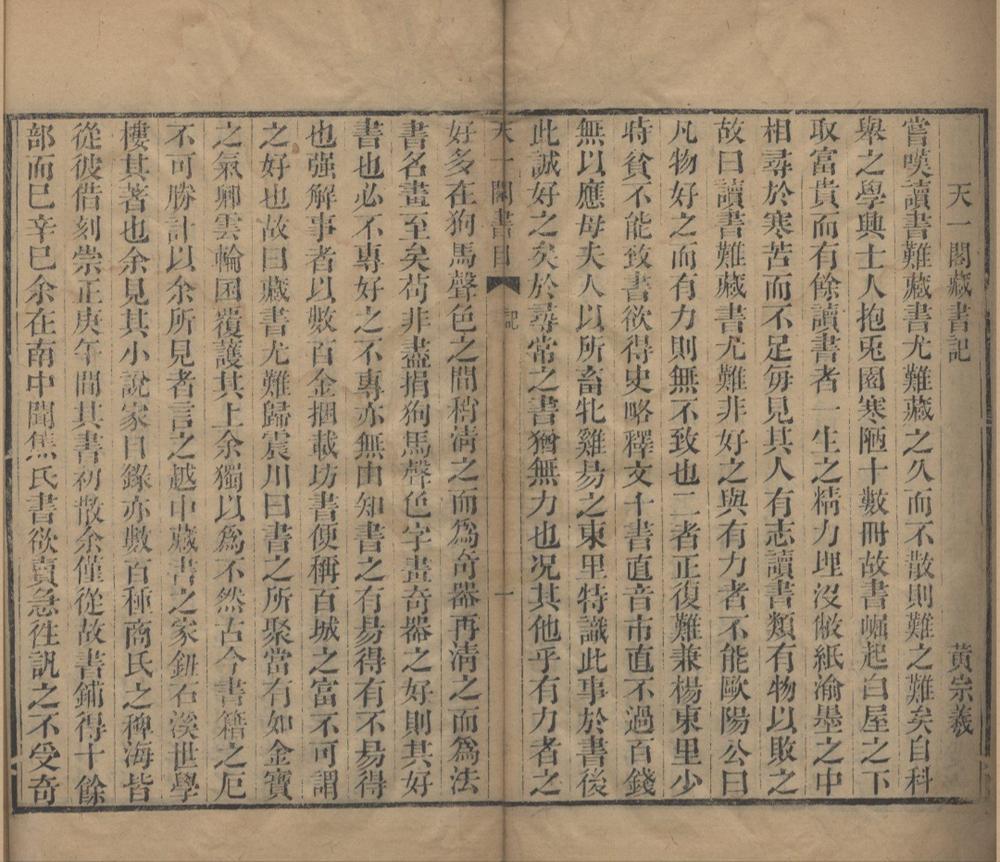 天一閣藏書記　黃宗羲
嘗嘆讀書難藏書尤難藏之久而不散則難之難矣自科
舉之學興士人抱兎園寒陋十數冊故書崛起白屋之下
取富貴而有餘讀書者一生之精力埋沒敝紙渝墨之中
相尋於寒苦而不足每見其人有志讀書類有物以敗之
故曰讀書難藏書尤難非好之與有力者不能歐陽公曰
凡物好之而有力則無不致也二者正復難兼楊東里少
時貧不能致書欲得史略釋文十書直音市直不過百錢
無以應母夫人以所畜牝雞易之東里特識此事於書後
此誠好之矣於尋常之書猶無力也况其他乎有力者之
天一閣書目　記　一
好多在狗馬聲色之間稍淸之而爲奇器再淸之而爲法
書名畫至矣苟非盡捐狗馬聲色字畫奇器之好則其好
書也必不專好之不專亦無由知書之有易得有不易得
也强解事者以數百金捆載坊書便稱百城之富不可謂
之好也故曰藏書尤難歸震川曰書之所聚當有如金寶
之氣卿雲輪囷覆護其上余獨以爲不然古今書籍之厄
不可勝計以余所見者言之越中藏書之家鈕石溪世學
樓其著也余見其小說家目錄亦數百種商氏之稗海皆
從彼借刻崇正庚午間其書初散余僅從故書鋪得十餘
部而巳辛巳余在南中聞焦氏書欲賣急徃訊之不受奇